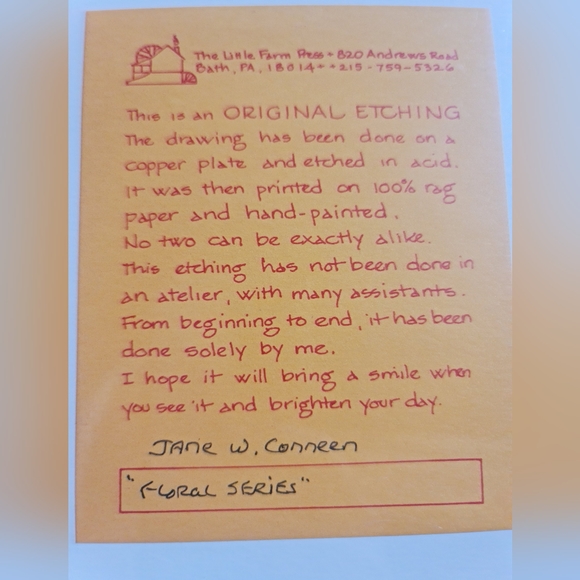 The Little Farm Press • 820 Andrews Road
Bath, PA, 18014 • • 215-759-5326
This is an ORIGINAL ETCHING
The drawing has been done on a
copper plate and etched in acid.
It was then printed on 100% rag
paper and hand-painted.
No two can be exactly alike.
This etching has not been done in
an atelier, with many assistants.
From beginning to end, it has been
done solely by me.
I hope it will bring a smile when
you see it and brighten your day.
Jane W. Conneen
"FLORAL SERIES"